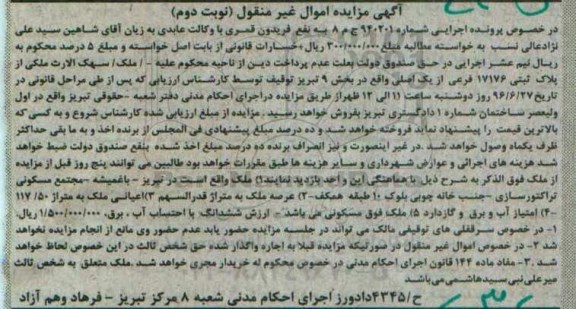 آگهی مزایده اموال غیر منقول (نوبت دوم)
در خصوص پرونده اجرایی شماره ۹۲۰۲۰۱ ج م ۸ به نفع فریدون قمری با وکالت عابدی به زیان آقای شاهین سید علی
نژادعالی نسب به خواسته مطالبه مبلغ ۳۰۰/۰۰۰/۰۰۰ ریال+خسارات قانونی از بابت اصل خواسته و مبلغ ۵ درصد محکوم به
ریال نیم عشر اجرایی در حق صندوق دولت بعلت عدم پرداخت دین از ناحیه محکوم علیه - / ملک/ سهک الارث ملکی از
پلاک ثبتی ۱۷۱۷۶ فرعی از یک اصلی واقع در بخش ۹ تبریز توقیف توسط کارشناس ارزیابی که پس از طی مراحل قانونی در
تاریخ ۹۶/۶/۲۷ روز دوشنبه ساعت ۱۱ الی ۱۲ ظهراز طریق مزایده دراجرای احکام مدنی دفتر شعبه -حقوقی تبریز واقع در اول
ولیعصر ساختمان شماره ۱ دادگستری تبریز بفروش خواهد رسید . مزایده از مبلغ ارزیابی شده کارشناس شروع و به کسی که
بالاترین قیمت را پیشنهاد نماید فروخته خواهد شد و ده درصد مبلغ پیشنهادی فی المجلس از برنده اخذ و به ما بقی حداکثر
ظرف یکماه وصول خواهد شد .در غیر اینصورت و نیز انصراف برنده ده درصد مبلغ اخذ شده بنفع صندوق دولت ضبط خواهد
شد هزینه های اجرائی و عوارض شهرداری و سایر هزینه ها طبق مقررات خواهد بود طالبین می توانند پنج روز قبل از مزایده
از ملک فوق الذکر به شرح ذیل با هماهنگی این واحد بازدید نمایند۱) ملک واقع است در تبریز - باغمیشه -مجتمع مسکونی
تراکتورسازی -جنب خانه چوبی بلوک ۱۰ طبقه همکف-۲) عرصه ملک به متراژ قدرالسهم ۳)اعیانی ملک به متراژ ۱۱۷/۵۰
-۴) امتیاز آب و برق و گازدارد ۵) ملک فوق مسکونی می باشد - ارزش ششدانگ با احتساب آب ، برق، ۱/۵۰۰/۰۰۰/۰۰۰ ریال.
۱- در خصوص سرقفلی های توقیفی مالک می تواند در جلسه مزایده حضور یابد عدم حضور وی مانع از انجام مزایده نخواهد
شد ۲- در خصوص اموال غیر منقول در صورتیکه مزایده قبلا به اجاره واگذار شده حق شخص ثالث در این خصوص لحاظ خواهد
شد .۳- مفاد ماده ۱۴۴ قانون اجرای احکام مدنی در خصوص محکوم له خریدار مجری خواهد شد .ملک متعلق به شخص ثالث
میرعلی نبی سیدهاشمی می باشد
ح/۴۳۴۵دادورز اجرای احکام مدنی شعبه ۸ مرکز تبریز - فرهاد وهم آزاد